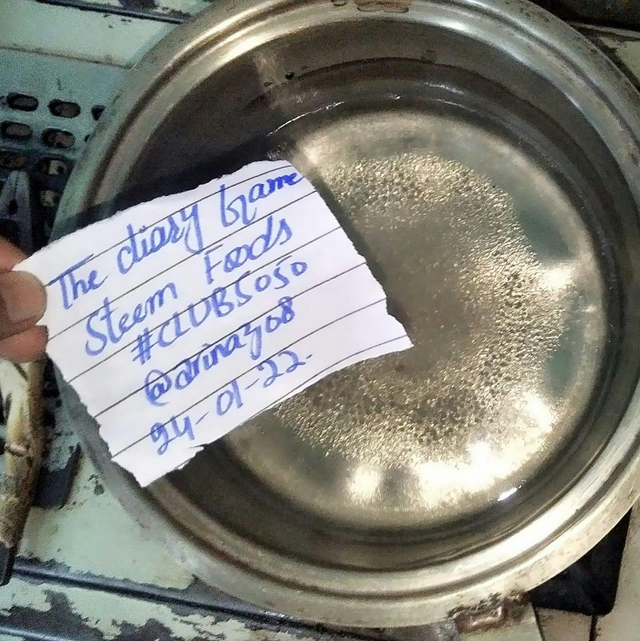 The diary Game
Steem Foods
#CLUB5050
@drinaz08
24-01-22.